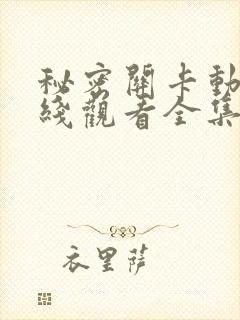 秘密關卡動
綫觀看全集
衣里薩